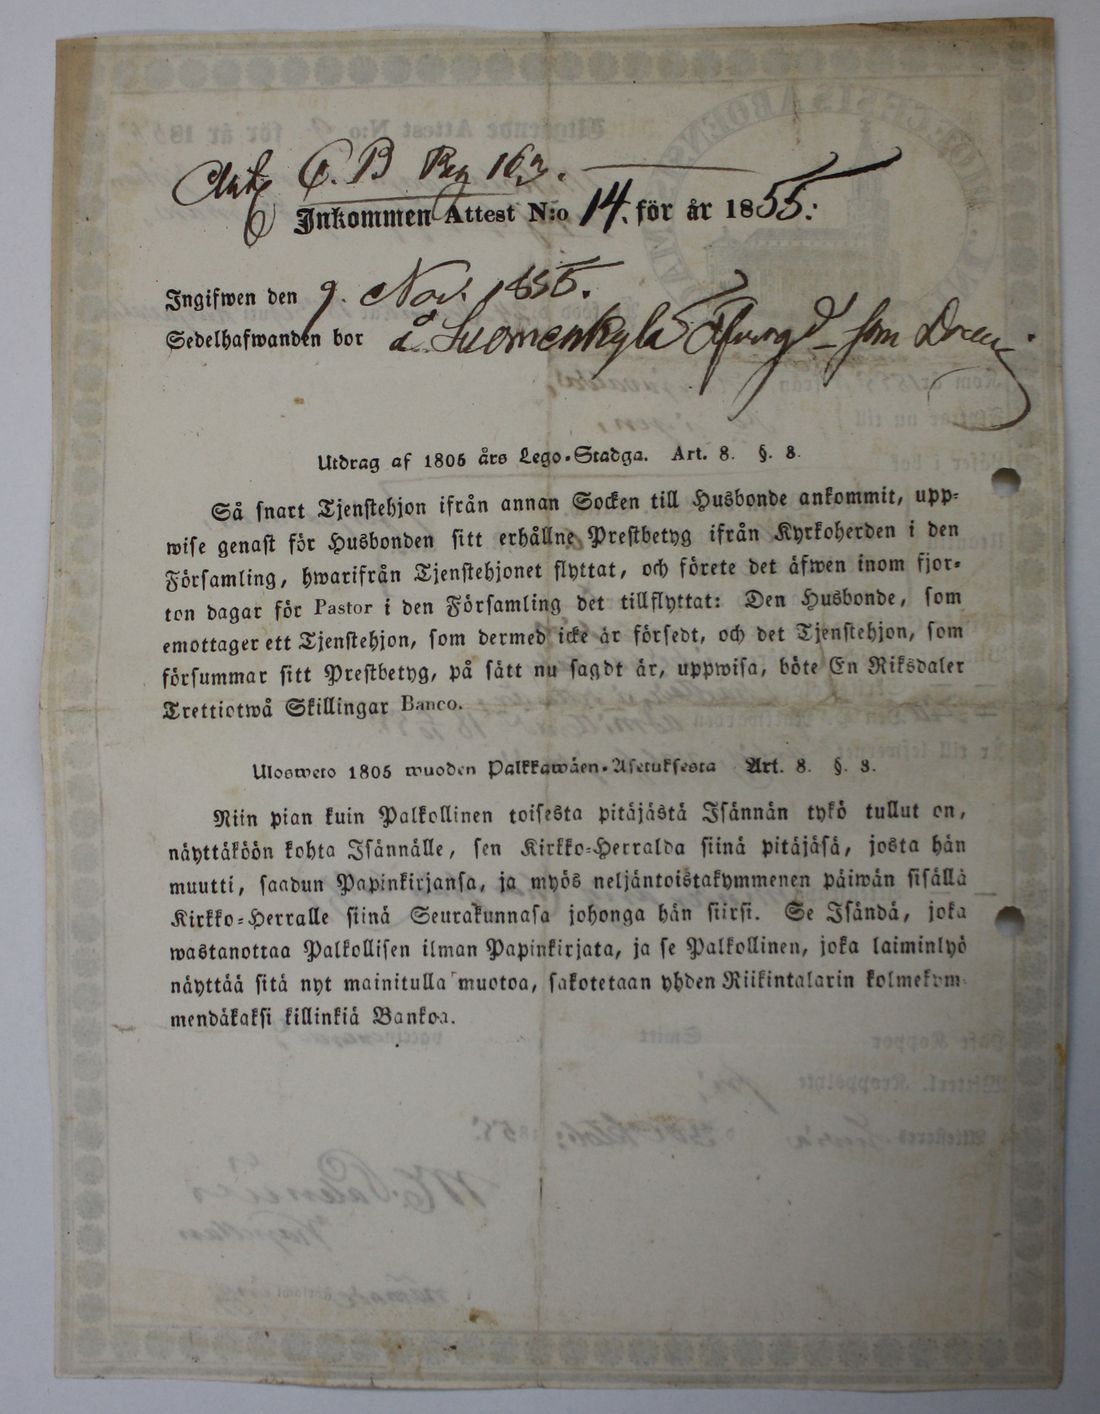 C. B Pag 163.
Inkommen Attest N:o 14. för år 1855.
Ingifwen den 9. Nov. 1855.
Sedelhafwanden bor å Suomenkylä som Dräng
Utdrag af 1805 års Lego-Stadga. Art. 8. §. 8.
Så snart Tjenstehjon ifrån annan Socken till Husbonde ankommit, upp-
wise genast för Husbonden sitt erhållne Prestbetyg ifrån Kyrkoherden i den
Församling, hwarifrån Tjenstehjonet flyttat, och förete det äfwen inom fjor-
ton dagar för Pastor i den Församling det tillflyttat: Den Husbonde, som
emottager ett Tjenstehjon, som dermed icke är försedt, och det Tjenstehjon, som
försummar sitt Prestbetyg, på sätt nu sagdt är, uppwisa, böte En Riksdaler
Trettiotwå Skillingar Banco.
Ulosweto 1805 wuoden Palkkawäen-Asetuksesta Art. 8. §. 8.
Niin pian kuin Palkollinen toisesta pitäjästä Isännän tykö tullut on,
näyttäköön kohta Isännälle, sen Kirkko-Herralda siinä pitäjäsä, josta hän
muutti, saadun Papinkirjansa, ja myös neljäntoistakymmenen päiwän sisällä
Kirkko-Herralle siinä Seurakunnasa johonga hän siirsi. Se Isändä, joka
wastanottaa Palkollisen ilman Papinkirjata, ja se Palkollinen, joka laiminlyö
näyttää sitä nyt mainitulla muotoa, sakotetaan yhden Riikintalarin kolmekym
mendäkaksi killinkiä Bankoa.